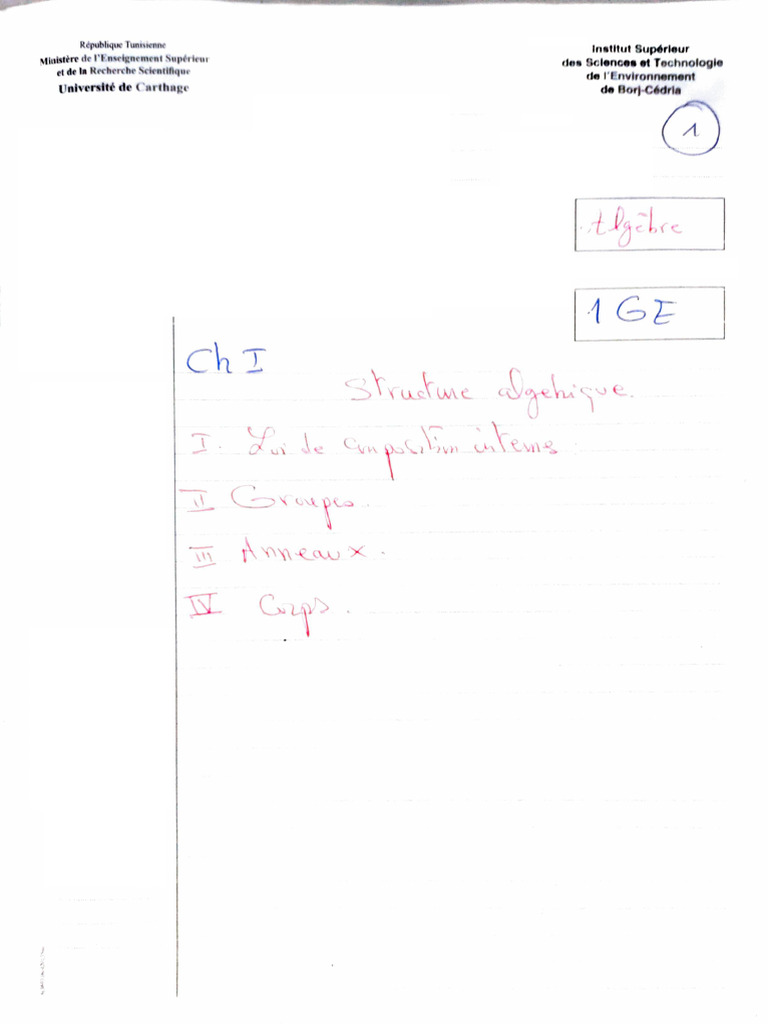 République Tunisienne
Ministère de l'Enseignement Supérieur
et de la Recherche Scientifique
Université de Carthage
Institut Supérieur
des Sciences et Technologie
de l'Environnement
de Borj-Cédria
1
Algèbre
1 GE
Ch I
Structure algebrique.
I. Loi de composition internes :
II Groupes.
III Anneaux.
IV Corps.